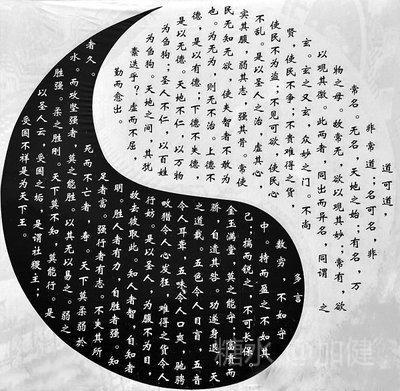 道可道，
非常道；名可名，非
常名。无名，天地之始；有名，万
物之母。故常无，欲以观其妙；常有，欲
以观其徼。此两者，同出而异名，同谓 之
玄。玄之又玄，众妙之门 不尚
贤，使民不争；不贵难得之货
使民不为盗；不见可欲，使民心
不乱。是以圣人之治 虚其心
实其腹 弱其志，强其骨。常使
民无知无欲，使夫智者不敢为
也。为无为，则无不治。上德不
德，是以有德；下德不失德，
是以无德。天地不仁，以万物
为刍狗；圣人不仁，以百姓
为刍狗。天地之间，其犹
橐迭乎？虚而不屈，
勤而愈出
多言
数穷 不如守
中。持而盈之不如其
己；揣而锐之，不可长保
金玉满堂，莫之能守；富贵而
骄，自遗其咎。功遂身退，天
之道哉。五色令人目盲；五音
令人耳聋，五味令人口爽，驰骋
畋猎令人心发狂，难得之货令人
行妨，是以圣人 为腹不为目，
故去彼取此。知人者智 自知者
明。胜人者有力 自胜者强。知
足者富。强行者有志。不失其所
者久。 死而不亡者 寿 天下莫柔弱於
水，而攻坚强者，莫之能胜。以其无以易之。弱之
胜强。柔之胜刚。天下莫不知 莫能行。是
以圣人云 受国之垢，是谓社稷主；
受国不祥是为天下王。